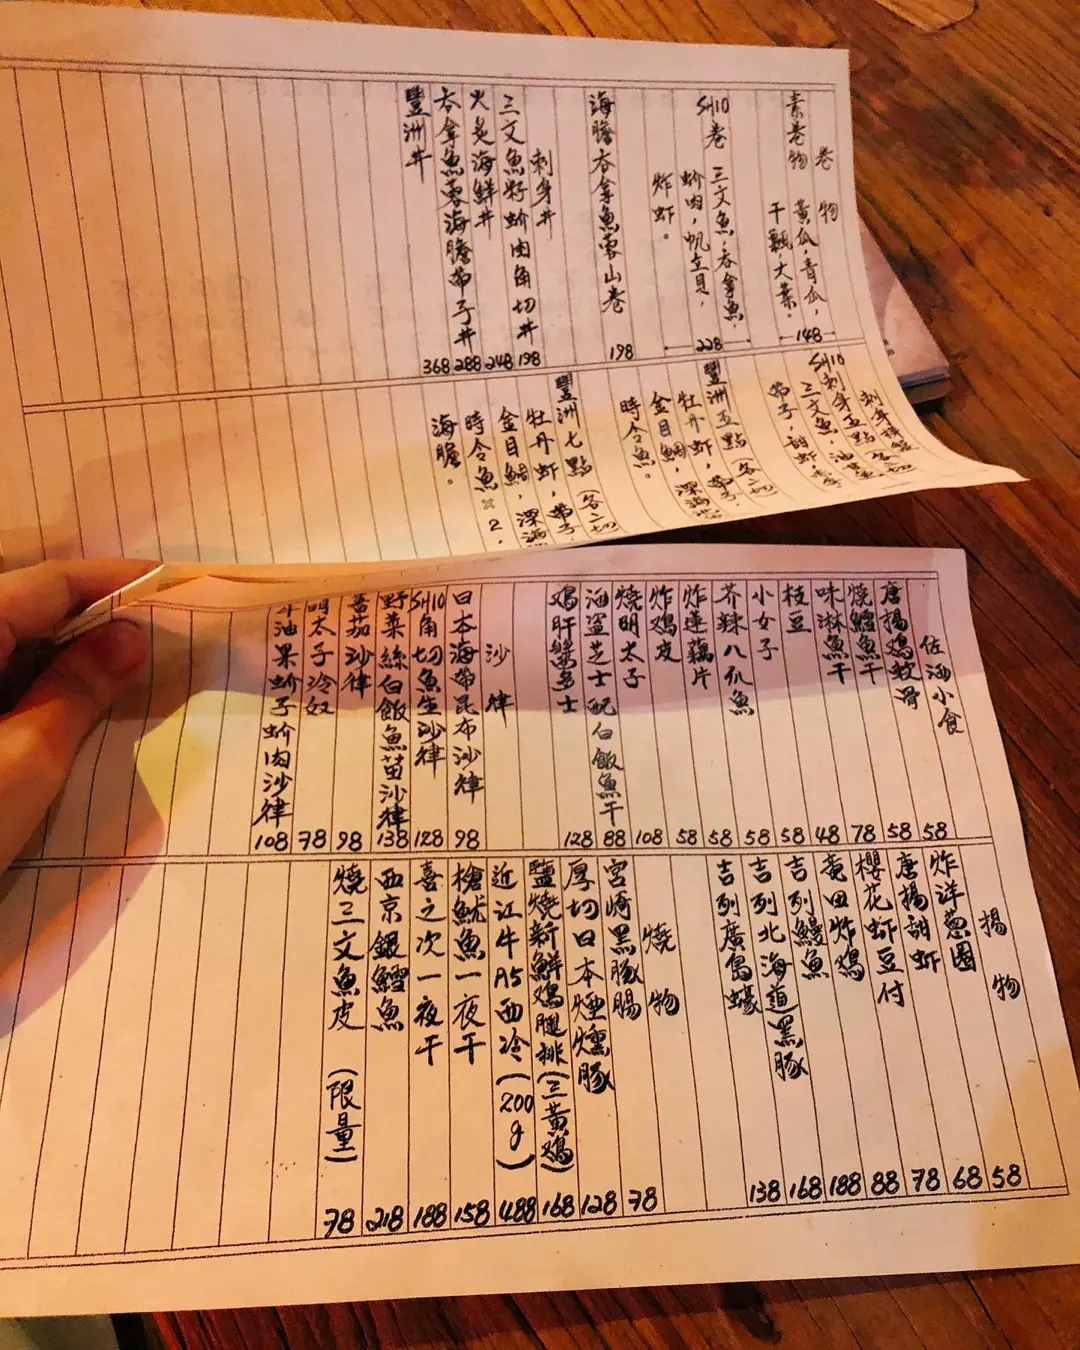 卷物
素卷物 黃瓜,青瓜,
干瓢,大葉。 148
SH10卷 三文魚,吞拿魚,
蚧肉,帆立貝, 228
炸蝦。
海膽吞拿魚蓉山卷 198
刺身丼
三文魚籽蚧肉角切丼 198
火炙海鮮丼 248
吞拿魚蓉海膽帶子丼 288
豐洲丼 368
刺身拼盤
SH10刺身五點(各二切
三文魚,油甘魚
帶子,甜蝦,
豐洲五點(各二切
牡丹蝦,帶子,
金目鯛,深海
時令魚。
豐洲七點(各二切
牡丹蝦,帶子
金目鯛,深海
時令魚×2,
海膽。
佐酒小食
唐揚鷄軟骨 58
燒鱈魚干 58
味淋魚干 78
枝豆 48
小女子 58
芥辣八爪魚 58
炸蓮藕片 58
炸鷄皮 58
燒明太子 108
酒盜芝士配白飯魚干 88
鷄肝醬多士 128
沙律
日本海帶昆布沙律 98
SH10角切魚生沙律 128
野菜絲白飯魚苗沙律 138
蕃茄沙律 98
明太子冷奴 78
牛油果蚧子蚧肉沙律 108
揚物
炸洋葱圈 58
唐揚甜蝦 68
櫻花蝦豆付 78
竜田炸鷄 88
吉列鰻魚 188
吉列北海道黑豚 168
吉列廣島蠔 138
燒物
宮崎黑豚腸 78
厚切日本煙燻豚 128
鹽燒新鮮鷄腿排(三黃鷄) 168
近江牛A5西冷(200g) 488
槍魷魚一夜干 158
喜之次一夜干 188
西京銀鱈魚 218
燒三文魚皮(限量) 78